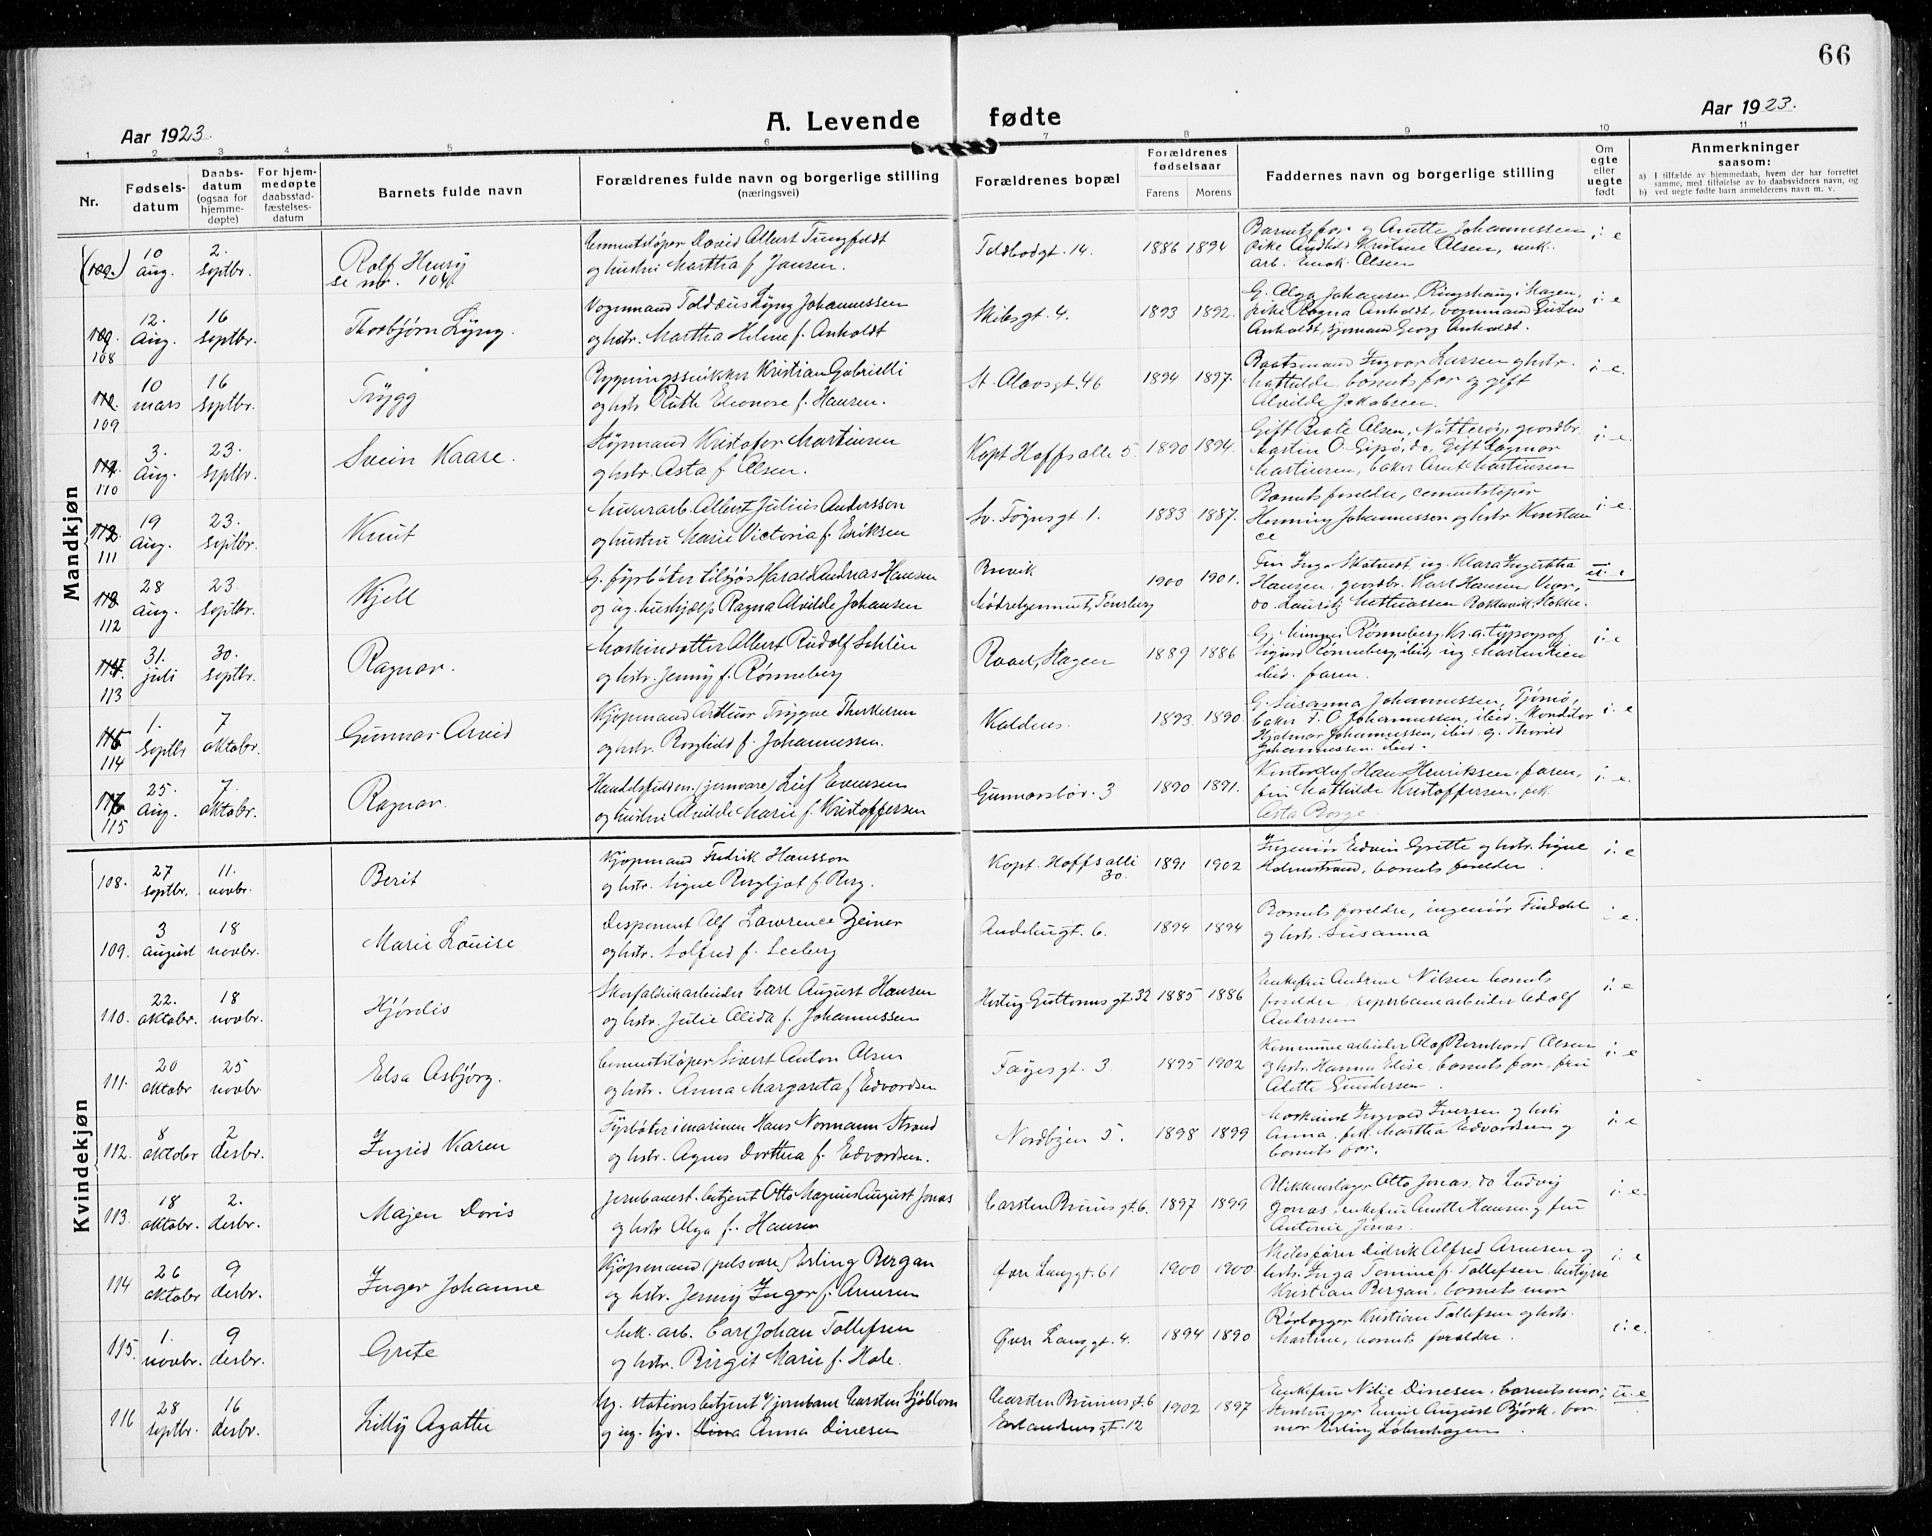 66
Aar 1923.
A. Levende fødte
Aar 1923.
1 2 3 4 5 6 7 8 9 10 11
Nr.
Fødselsdatum
Daabsdatum (ogsaa for hjemmedøpte)
For hjemmedøpte daabsstadfæstelsesdatum
Barnets fulde navn
Forældrenes fulde navn og borgerlige stilling
(næringsvei)
Forældrenes bopæl
Forældrenes fødselsaar
Farens Morens
Faddernes navn og borgerlige stilling
Om egte eller uegte født
Anmerkninger
saasom:
a) I tilfælde av hjemmedaab, hvem der har forrettet samme, med tilføielse av to daabsvidners navn, og
b) ved uegte født barn anmelderens navn m. v.
Mandkjøn
(109.) 10 aug. 2. septbr. Rolf Henry
se nr. 104.
Cementstøper David Albert
og hustru Martha f. Jansen.
Toldbodgt. 14. 1886 1894
Barnets far og Anette Johannessen
pike Andhild Kristine Olsen, mek.
arb. Enok Olsen
i. e
108 12. Aug. 16 septbr. Thorbjørn Lyng.
Vognmand Toldæus Lyng Johannessen
og hstr. Martha Helene f. Anholdt
Milesgt. 4. 1893 1892.
G. Olga Johansen, Ringshaug i Slagen,
pike Ragna Anholdt, vognmand Gustav
Anholdt, sjømand Georg Anholdt.
i. e
109 10 mars 16 septbr. Trygg
Bygningssnikker Kristian Gabrielli
og hstr. Ruth Eleonore f. Hansen.
St. Olavsgt. 46 1894 1897.
Baatsmand Ingvar Larsen og hstr.
Mathilde, barnets far og gift
Alvilde Jakobsen.
i. e.
110 3. Aug. 23. septbr. Svein Kaare.
Styrmand Kristofer Martinsen
og hstr. Asta f. Olsen.
Kapt. Hoffs alle 5. 1890 1894.
Gift Beate Olsen, Nøtterøy, gaardbr.
Martin O. Gipø, do, Gift Dagmar
Martinsen, baker Arnt Martinsen
i. e.
111 19 Aug. 23. septbr. Knut
Murerarb. Albert Julius Andersson
og hustru Marie Victoria f. Eriksen
Sv. Føynsgt 1. 1883 1887.
Barnets foreldre, cementstøper
Henning Johannessen og hstr Konstan
ce
i. e.
112 28 aug. 23. septbr. Kjell
G. fyrbøter tilsjøs Harald Andreas Hansen
og ug. hushjælp Ragna Alvilde Johansen
Brevik
Mødrehjemmet, Tønsberg
1900 1901.
Hansen, gaardbr. Karl Hansen,
do. Lauritz Mathiassen
u. e
113 31. juli 30. septbr. Ragnar.
Maskinsetter Albert Rudolf Sehlin
og hstr. Jenny f. Rønneberg
Raael, Slagen 1889 1886
G. Minni Rønneberg, Kr.a. typograf
Sigurd Rønneberg, ibid,
ibid. faren.
i. e
114 1. septbr 7 oktobr. Gunnar Arvid
Kjøpmand Arthur Trygve Therkelsen
og hstr. Borghild f. Johannessen.
Kaldnes. 1893 1890.
G. Susanna Johannessen, Tjømø,
baker F. O. Johannessen, ibid. Konditor
Hjalmar Johannessen, ibid, g. Thorild
Johannessen ibid.
i. e
115 25. Aug. 7. oktobr. Ragnar.
Handelsfuldm. (jernvare) Leif Evensen
og hustru Alvilde Marie f. Kristoffersen
Gunnarsbør. 3 1890 1891.
Kontorchef Hans Henriksen, faren,
fru Mathilde Kristoffersen, frk.
Asta Borge.
i. e.
Kvindekjøn
108. 27 septbr. 11. novbr. Berit
Kjøpmand Fredrik Hansson
og hstr. Signe Bergljot f. Berg.
Kapt. Hoffs alle
30.
1891 1902
Ingeniør Edvin Grette og hstr. Signe
Holmestrand, barnets foreldre.
i. e
109. 3 august 18 novbr. Marie Louise
Disponent Alf Lawrence Zeiner
og hstr. Solfred f. Seeberg
Andebugt. 6. 1894 1894
Barnets foreldre, ingeniør Finddal
og hstr. Susanna
i. e.
110. 22. oktobr. 18 novbr. Hjørdis
Skofabrikarbeider Carl August Hansen
og hstr. Julie Alida f. Johannessen
Hertug Guttormsgt. 32 1885 1886
Enkefru Andrine Nilsen barnets
foreldre, reperbanearbeider Adolf
Andersen
i. e
111. 20 oktobr 25 novbr. Elsa Asbjørg.
Cementstøper Sivert Anton Olsen
og hstr. Anna Margareta f. Edvardsen
Føyesgt. 3 1895 1902
Kommunearbeider Olaf Bernhard Olsen
og hstr. Hanna Elise, barnets far, fru
Alette Gundersen.
i. e
112. 8 oktober 2 desbr. Ingrid Karen
Fyrbøter i marinen Hans Normann Strand
og hstr. Agnes Dorthea f. Edvardsen.
Nordbyen 5. 1898 1899
Maskinist Ingvald Iversen og hstr
Anna, frk. Martha Edvardsen og
barnets far.
i. e
113. 18 oktobr. 2. desbr. Majen Doris
Jernbanest. betjent Otto Magnus August Jonas
og hstr Olga f. Hansen
Carsten Bruunsgt. 6. 1897 1899
Blikkenslager Otto Jonas, do Ludvig
Jonas, enkefru Anette Hansen og fru
Antonie Jonas.
i. e.
114 26 oktobr 9 desbr. Inger Johanne
Kjøpmand (pelsvare) Erling Bergan
og hstr. Jenny Inger f. Arnesen
Øvre Langgt. 61 1900 1900
Didrik Alfred Arnesen og
hstr. Inga Tomine f. Tollefsen, bestyrer
Kristian Bergan, barnets mor
i. e
115. 1. novbr. 9 desbr. Grete
Mek. arb. Carl Johan Tollefsen
og hstr. Birgit Marie f. Hole.
Øvre Langgt. 4. 1894 1890
Rørlegger Kristian Tollefsen og hstr.
Martine, barnets foreldre.
i. e.
116 28 septbr. 16 desbr. Lilly Agathe
Ug. stationsbetjent v/jernbane Carsten Sjøblom
og ug. syr. Dina Anna Dinesen
Carsten Bruunsgt. 6
Erlandsensgt. 12
1902 1897
Enkefru Nilie Dinesen, barnets mor,
Stenhugger Emil August Bjørk, bar
mor Erling
u. e